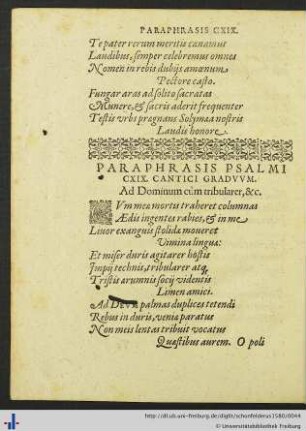 PARAPHRASIS CXIX.
Te pater rerum meritis canamus
Laudibus, semper celebremus omnes
Nomen in rebis dubijs amœnum
Pectore casto.
Fungar aras ad solito sacratas
Munere, & sacris aderit frequenter
Testis urbs prægnans Solymæa nostris
Laudis honore
PARAPHRASIS PSALMI
CXIX. CANTICI GRADVVM.
Ad Dominum cùm tribularer, &c.
Vm mea mortis traheret columnas
Ædis ingentes rabies, & in me
Livor exanguis stolida moveret
Vimina lingua:
Et miser duris agitarer hostis
Impij technis, tribularer atq;
Tristis ærumnis socij videntis
Limen amici.
Ad palmas duplices tetendi
Rebus in duris, venia paratus
Non meis lentas tribuit vocatus
Quæstibus aurem. O poli
http://dl.ub.uni-freiburg.de/diglit/schonfelderus1580/0044
© Universitätsbibliothek Freiburg